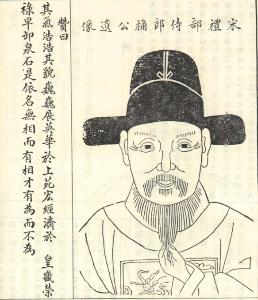 宋禮部侍郎楠公遺像
贊曰
其氣浩浩其貌巍巍展英華於上苑宏經濟於 皇畿榮
祿早卸泉石是依名無相而有相才有為而不為